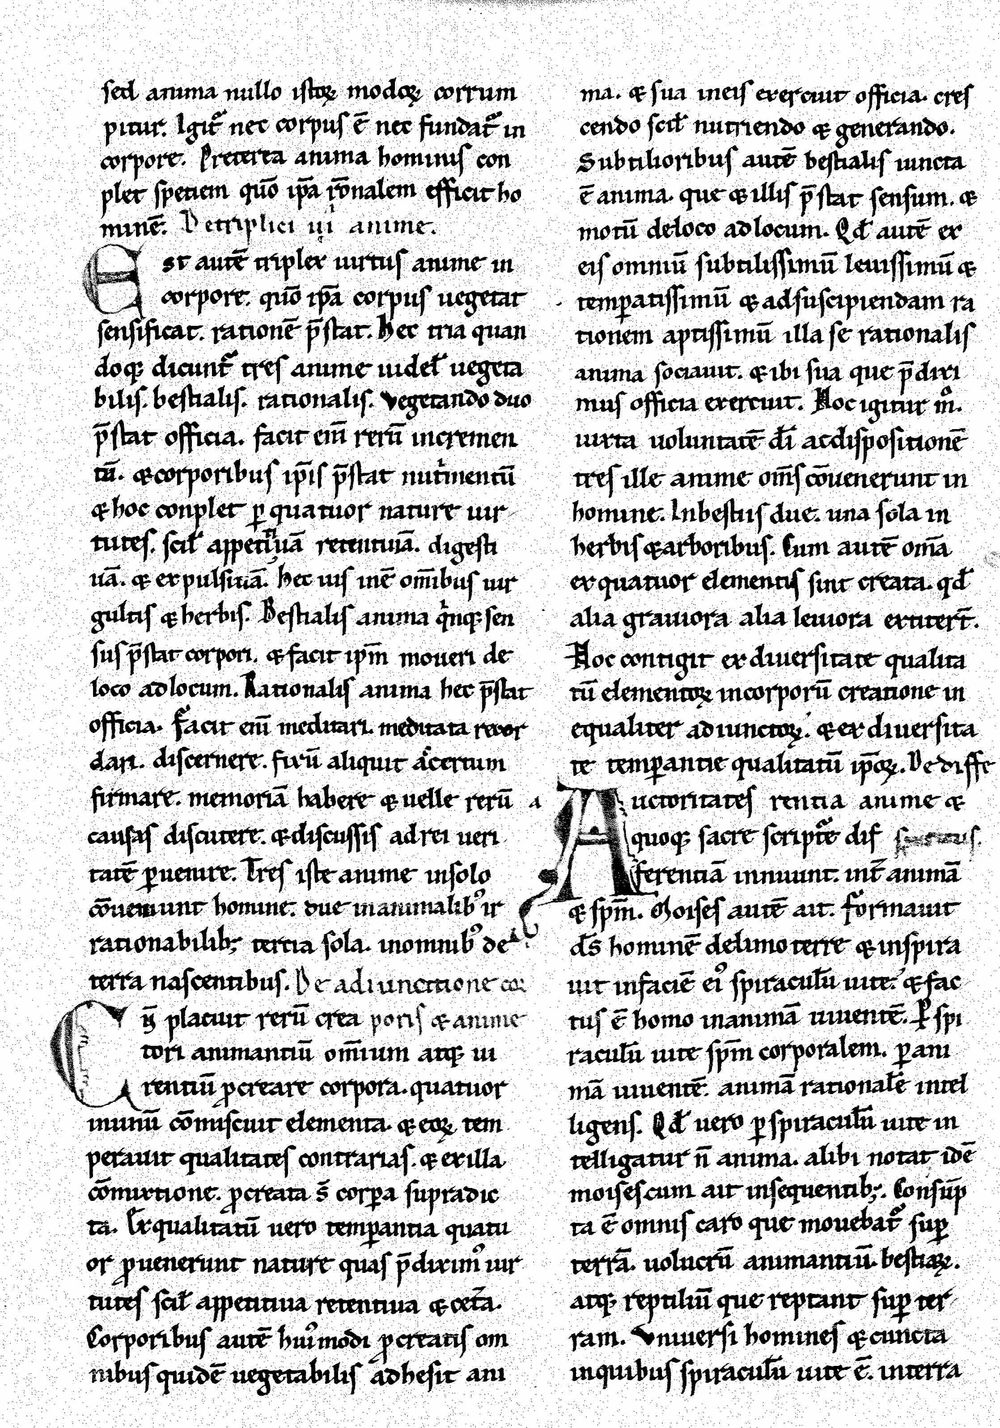 sed anima nullo istoꝝ modoꝝ corrum
pitur. Igit᷑ nec corpus ē nec fundat᷑ in
corpore. Preterea anima hominis con
plet speciem quō ip̄a rōnalem efficit ho
minē. De triplici ui anime.
Est autē triplex uirtus anime in
corpore. quō ip̄a corpus uegetat
sensificat. rationē p̄stat. Hec tria quan
doqꝫ dicunt᷑ tres anime uidel̄ uegeta
bilis. bestialis. rationalis. Vegetando duo
p̄stat officia. facit eni᷑ rerū incremen
tū. ⁊ corporibus ip̄is p̄stat nut᷑mentū
⁊ hoc conplet ꝑ quatuor nature uir
tutes. scil̄ appetitiuā retentiuā. digesti
uā. ⁊ expulsiuā. hec uis inē om̄ibus uir
gultis ⁊ herbis. Bestialis anima q̇nqꝫ sen
sus p̄stat corpori. ⁊ facit ip̄m moueri de
loco ad locum. Rationalis anima hec p̄stat
officia. Facit eni᷑ meditari. meditata recor
dari. discernere. fixū aliquit ac certum
firmare. memoriā habere ⁊ uelle rerū
causas discutere. ⁊ discussis ad rei ueri
tatē ꝑuenire. Tres iste anime in solo
cōueniunt homine. due in animalibꝰ ir
rationabilibꝫ tertia sola. in omnibꝰ de
terra nascentibus. De adiunctione cor
Cū placuit rerū crea poris ⁊ anime
tori animantiū om̄ium atqꝫ ui
rentiū ꝓcreare corpora. quatuor
munū cōmiscuit elementa. ⁊ eoꝝ tem
perauit qualitates contrarias. ⁊ ex illa
cōmixtione. ꝓcreata s̄ corꝑa supradic
ta. Ex qualitatū uero temꝑantia quatu
or ꝓuenerunt nature quas p̄diximꝰ uir
tutes scil̄ appetitiua retentiua ⁊ cet̄a.
Corporibus autē hui᷑modi ꝓcreatis om
nibus quidē uegetabilis adhesit ani
ma. ⁊ sua in eis exercuit officia. cres
cendo scil̄ nutriendo ⁊ generando.
Subtilioribus autē bestialis iuncta
ē anima. que ⁊ illis p̄stat sensum. ⁊
motū de loco ad locum. Qd̄ autē ex
eis omniū subtilissimū leuissimū ⁊
temꝑatissimū ⁊ ad suscipiendam ra
tionem aptissimū illa se rationalis
anima sociauit. ⁊ ibi sua que p̄dixi
mus officia exercuit. Hoc igitur m̊.
iuxta uoluntatē dī ac dispositionē
tres ille anime om̄s cōuenerunt in
homine. In bestiis due. una sola in
herbis ⁊ arboribus. Cum autē om̄a
ex quatuor elementis sint creata. qd̄
alia grauiora alia leuiora extiter̄t.
Hoc contigit ex diuersitate qualita
tū elementoꝝ in corporū creatione in
equaliter adiunctoꝝ. ⁊ ex diuersita
te temꝑantie qualitatū ip̄oꝝ. De diffe
Auctoritates rentia anime ⁊
quoqꝫ sacre scripture dif spiritus.
ferentiā innuunt. int᷑ animā
⁊ sp̄m. Moises autē ait. Formauit
ds̄ hominē de limo terre ⁊ inspira
uit in faciē eiꝰ spiraculū uite. ⁊ fac
tus ē homo in animā uiuentē. Ꝑ spi
raculū uite sp̄m corporalem. ꝑ ani
mā uiuentē. animā rationalē intel
ligens. Qd̄ uero ꝑ spiraculū uite in
telligatur n̄ anima. alibi notat idē
moises cum ait in sequentibꝫ. Consūp
ta ē omnis caro que mouebat᷑ suꝑ
terrā. uolucrū animantiū. bestiaꝝ.
atqꝫ reptiliū que reptant suꝑ ter
ram. Vniuersi homines ⁊ cuncta
in quibus spiraculū uite ē. in terra